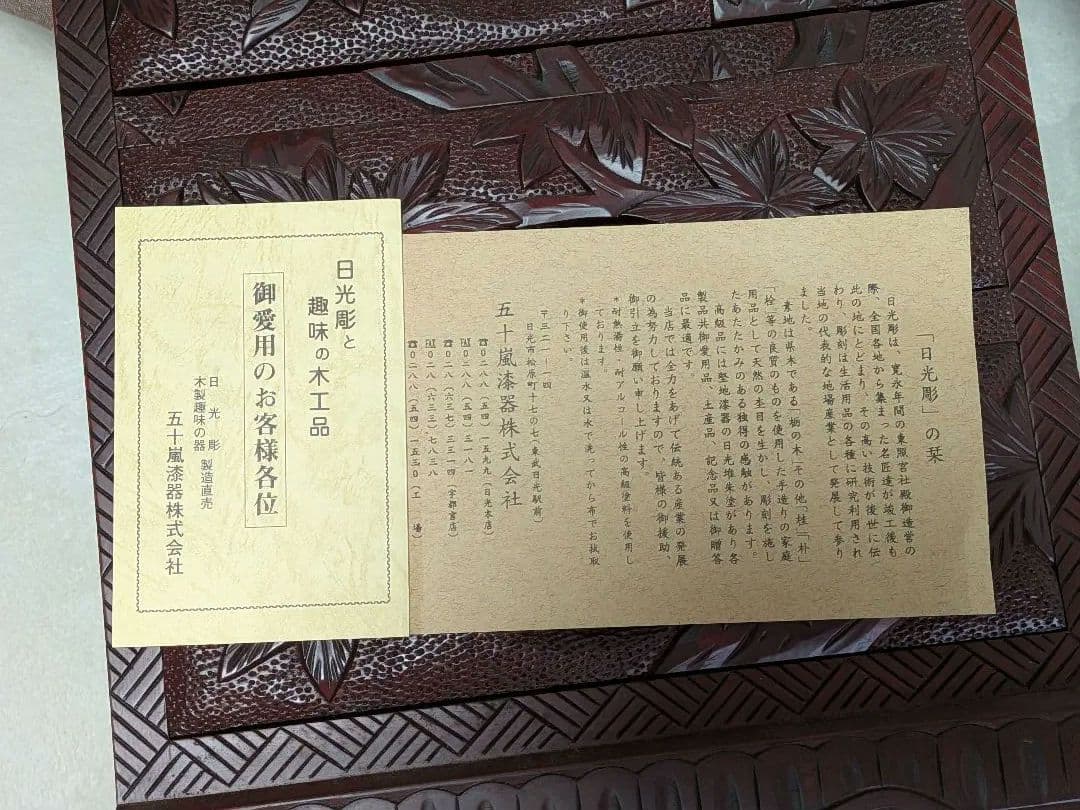 「日光彫」の栞
日光彫は、寛永年間の東照宮社殿御造営の
際、全国各地から集まった名匠達が竣工後も
此の地にとどまり、その高い技術が後世に伝
わり、彫刻は生活用品の各種に研究利用され
当地の代表的な地場産業として発展して参り
ました。
素地は県木である「栃の木」その他「桂」「朴」
「栓」等の良質のものを使用した手造りの家庭
用品として天然の木目を生かし、彫刻を施し
たあたたかみのある独得の感触があります。
高級品には堅地漆器の日光堆朱塗があり各
製品共御愛用品、土産品、記念品又は御贈答
品に最適です。
当店では全力をあげて伝統ある産業の発展
の為努力しておりますので、皆様の御援助、
御引立を御願い申し上げます。
*耐熱湯性・耐アルコール性の高級塗料を使用し
ております。
*御使用後は温水又は水で洗ってから布でお拭取
り下さい。
五十嵐漆器株式会社
〒三二一―一四
日光市松原町十七の七(東武日光駅前)
☎〇二八八(五四)一五九九(日光本店)
FAX〇二八八(五四)三一八一
☎〇二八(六三七)三三一四(宇都宮店)
FAX〇二八(六三三)七八三八
☎〇二八八(五四)一五三〇(工 場)
日光彫と
趣味の木工品
御愛用のお客様各位
日光彫
木製趣味の器
製造直売
五十嵐漆器株式会社